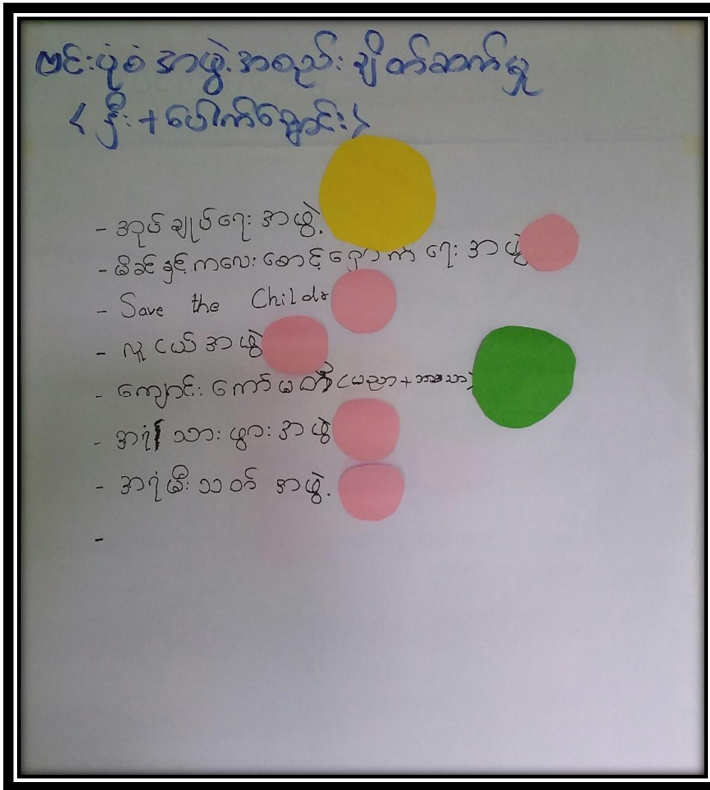 ဗင်းပုံစံ အဖွဲ့အစည်း ချိတ်ဆက်မှု
< ဦး + ပေါက်ချောင်း >
- အုပ်ချုပ်ရေး အဖွဲ့.
- မိခင်နှင့်ကလေး စောင့်ရှောက်ရေး အဖွဲ့
- Save the Childr
- လူငယ်အဖွဲ့
- ကျောင်း ကော်မတီ (ပညာ +
- အရံ သားဖွား အဖွဲ့
- အရံမီးသတ် အဖွဲ့.
-